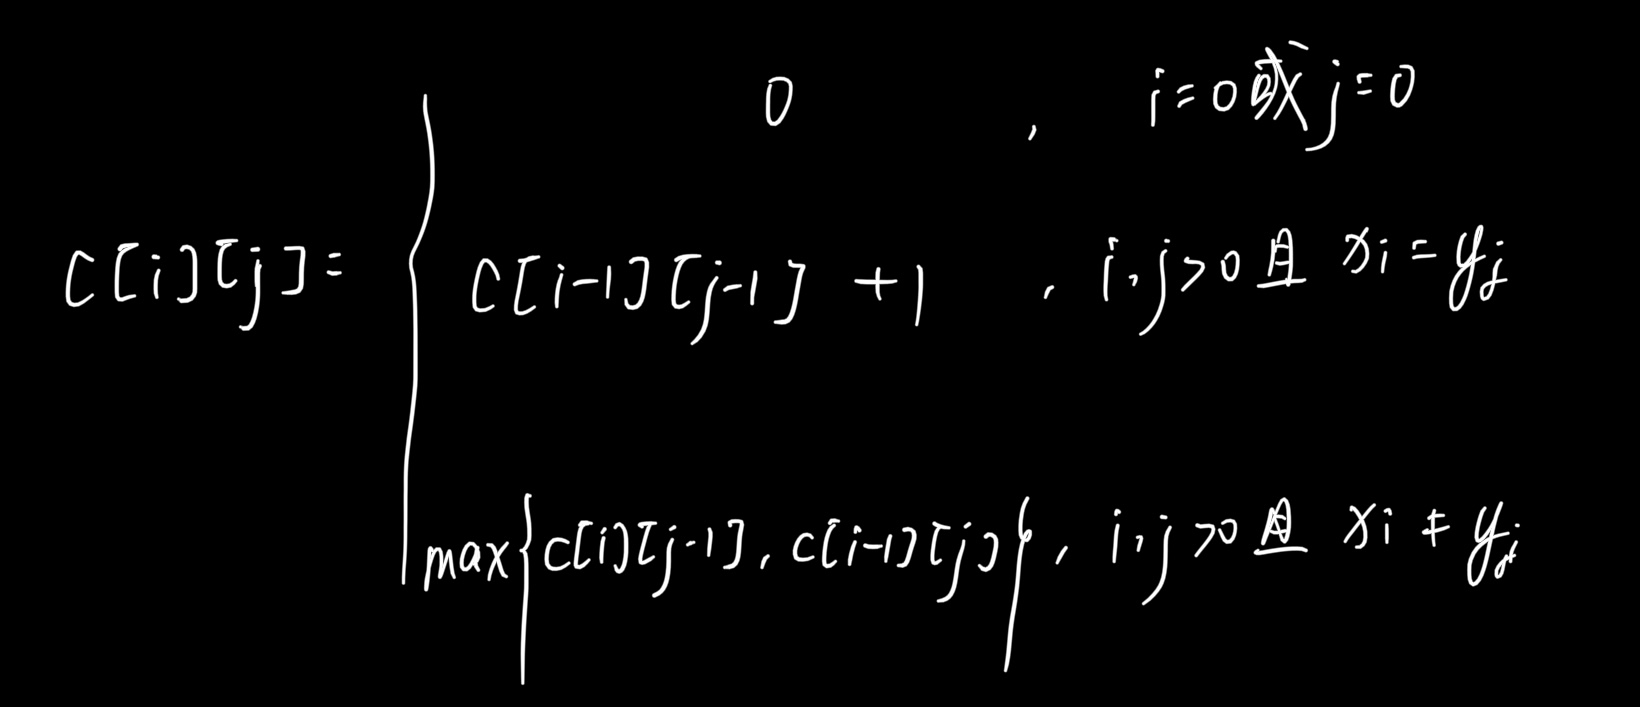 0 , i=0或j=0
C[i][j]= { C[i-1][j-1] +1 , i,j>0且 xi=yj
max{c[i][j-1], c[i-1][j]} , i,j>0且 xi≠yj